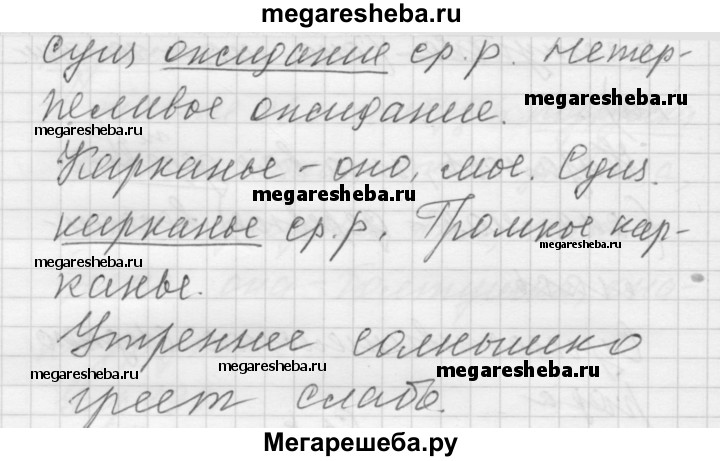 megaresheba.ru
сущ ожидание ср.р. Нетер-
пеливое ожидание.
megaresheba.ru
megaresheba.ru
Карканье - оно, мое. Сущ.
megaresheba.ru
карканье ср.р. Громкое кар-
megaresheba.ru
megaresheba.ru
канье.
Утреннее солнышко
megaresheba.ru
megaresheba.ru
megaresheba.ru
греет слабо.
Мегарешеба.ру